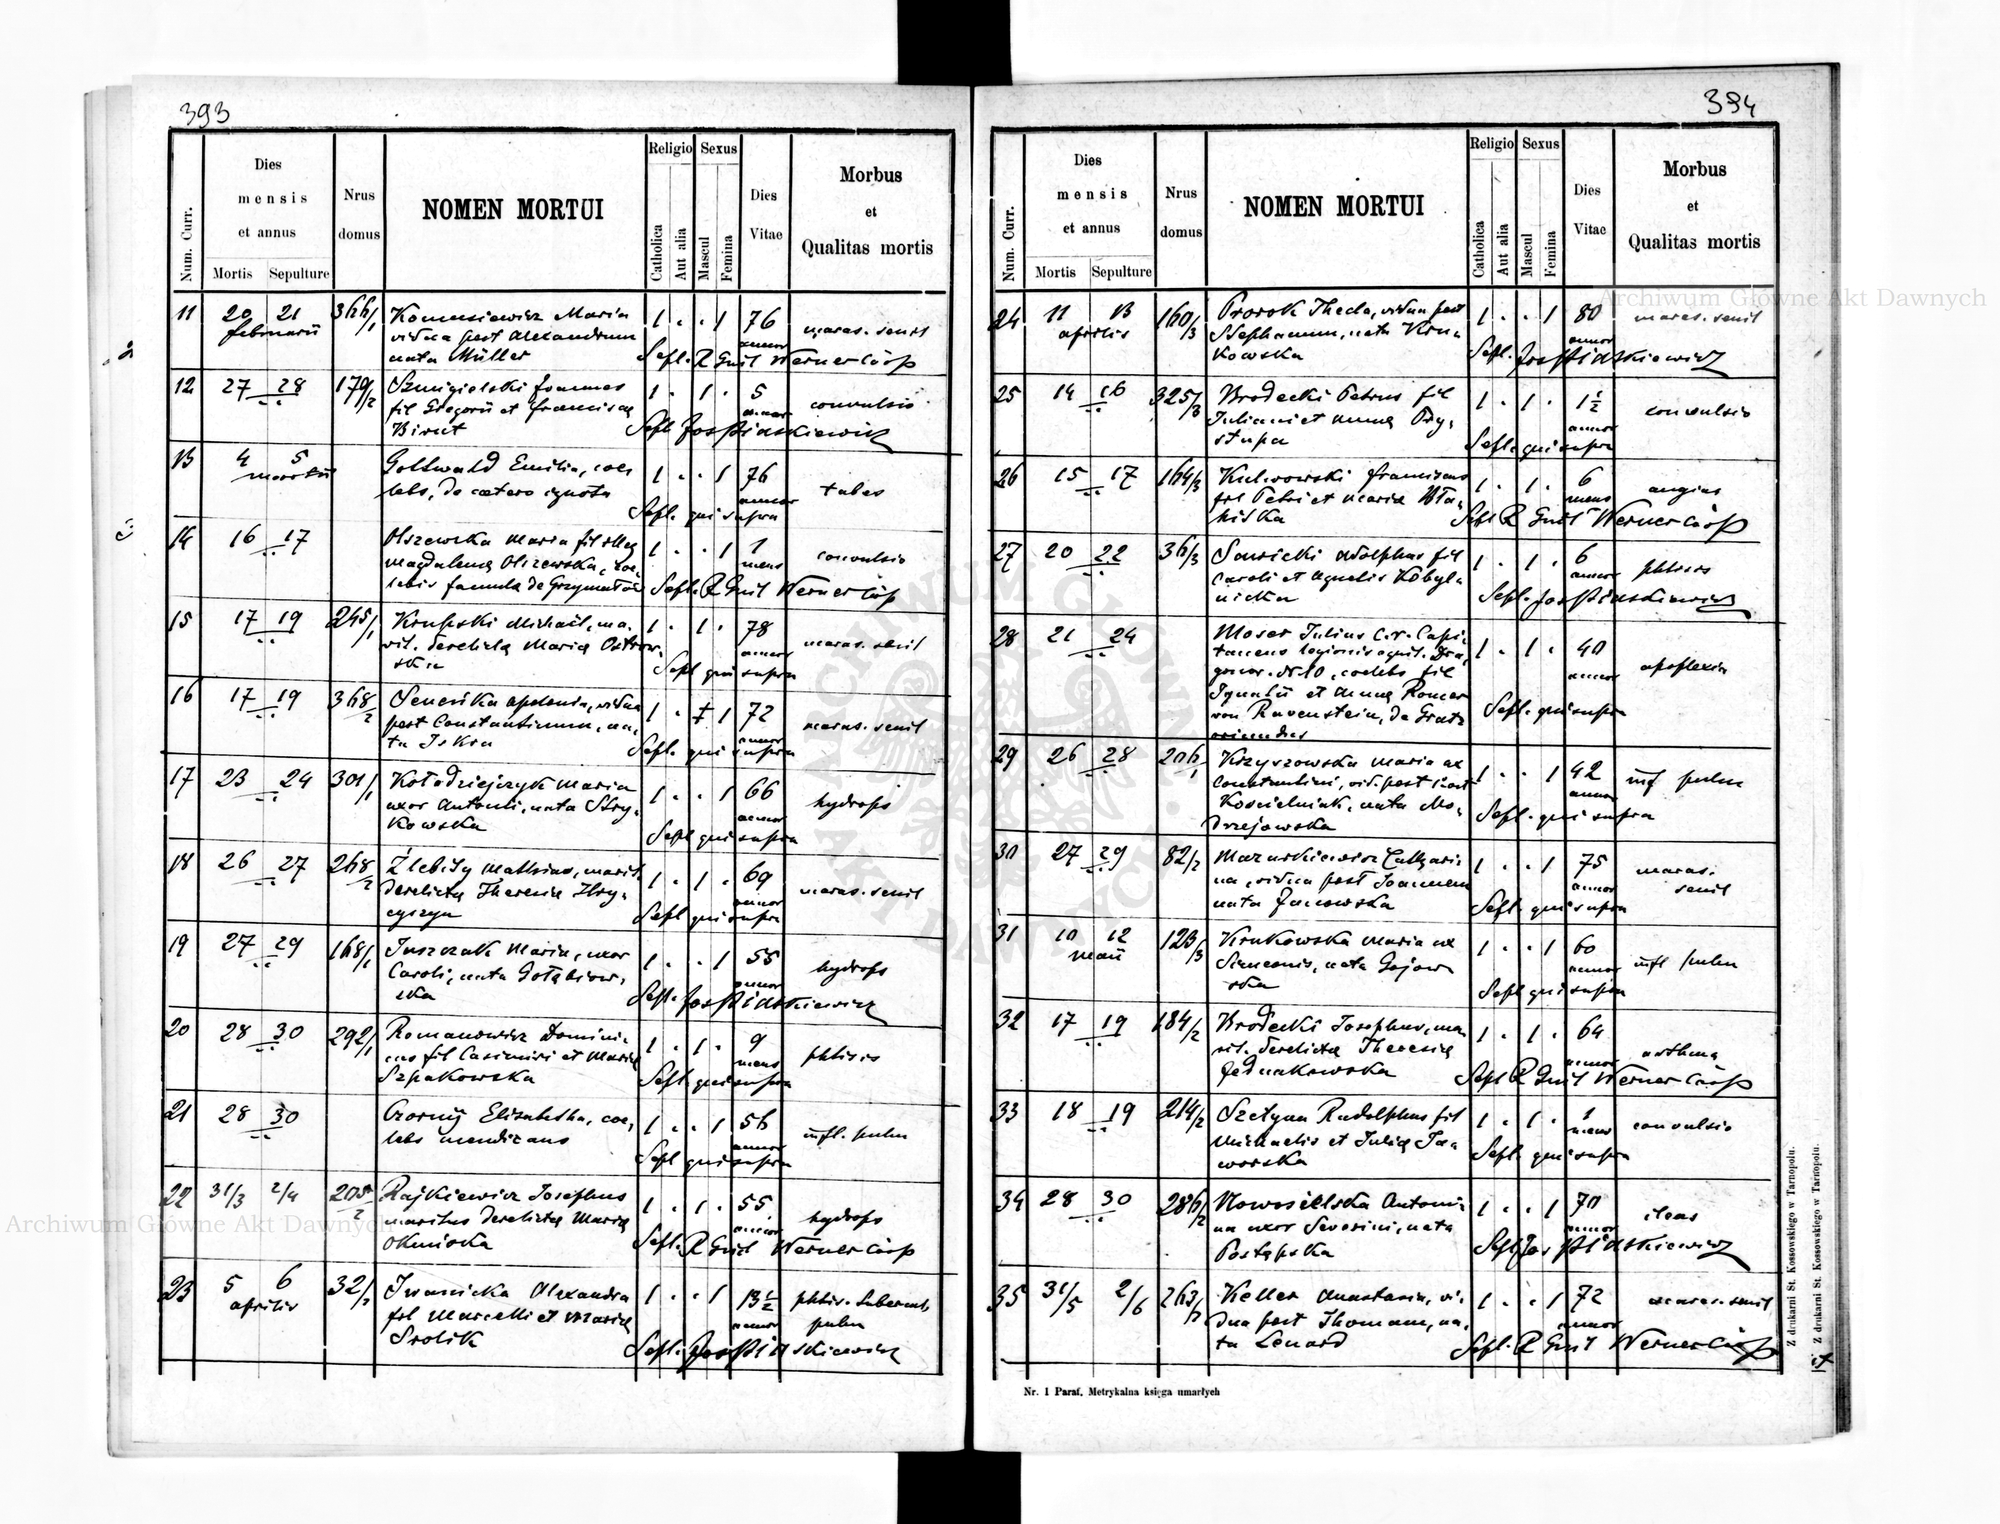 393
Num. Curr.
Dies
mensis
et annus
Mortis Sepulture
Nrus
domus
NOMEN MORTUI
Religio
Catholica
Aut alia
Sexus
Mascul
Femina
Dies
Vitae
Morbus
et
Qualitas mortis
11 20 21 366/1 Maria 1 . . 1 76 maras. senil
februarii vidua post Alexandrum annor
nata Müller Sepl. R Guil Werner Coop
12 27 28 179/2 Szmigielski Joannes 1 . 1 . 5 convulsio
fil Gregorii et Franciscae annor
Birut Sepl Jos Piaskiewicz
13 4 5 Gottwald Emilia, coe- 1 . . 1 76 tabes
martii lebs, de cetero ignota annor
Sepl. qui supra
14 16 17 Olszewska Maria fil illeg 1 . . 1 1 convulsio
Magdalena Olszewska, coe- mens
lebis famula de Grzymałów Sepl. R Guil Werner Coop
15 17 19 245/1 Krupski Michael, ma- 1 . 1 . 78 maras. senil
rit. derelictae Maria Ostrow- annor
ska Sepl qui supra
16 17 19 368/2 Apolonia, vidua 1 . 1 72 maras. senil
post Constantinum, na- annor
ta Iskra Sepl. qui supra
17 23 24 301/1 Kołodziejczyk Maria 1 . . 1 66 hydrops
uxor Antonii, nata Stry- annor
kowska Sepl qui supra
18 26 27 268/2 Mathias, marit. 1 . 1 . 69 maras. senil
derelictae Theresia Hry- annor
cyszyn Sepl qui supra
19 27 29 168/1 Juszczak Maria, uxor 1 . . 1 55 hydrops
Caroli, nata Gołębiow- annor
ska Sepl. Jos Piaskiewicz
20 28 30 292/1 Romanowicz Domini- 1 . 1 . 9 phtisis
cus fil Casimiri et Maria mens
Szpakowska Sepl. qui supra
21 28 30 Czorny Elisabetha, coe- 1 . . 1 56 infl. pulm
lebs mendicans annor
Sepl qui supra
22 31/3 2/4 205/2 Rajkiewicz Josephus 1 . 1 . 55 hydrops
maritus derelictae Maria annor
Okniska Sepl. R Guil Werner Coop
23 5 6 32/1 Iwanicka Alexandra 1 . . 1 13 1/2 phtis. tubercul.
aprilis fil Marcelli et Maria annor pulm
Srolik Sepl. Jos Piaskiewicz
394
Num. Curr.
Dies
mensis
et annus
Mortis Sepulture
Nrus
domus
NOMEN MORTUI
Religio
Catholica
Aut alia
Sexus
Mascul
Femina
Dies
Vitae
Morbus
et
Qualitas mortis
24 11 13 160/3 Prorok Thecla, vidua post 1 . . 1 80 maras. senil
aprilis Stephanum, nata Kru- annor
kowska Sepl. Jos Piaskiewicz
25 14 16 325/3 Brodecki Petrus fil 1 . 1 . 1 1/2 convulsio
Juliani et Anna Pry- annor
stupa Sepl. qui supra
26 15 17 164/3 Franciscus 1 . 1 . 6 angina
fil Petri et Maria mens
Sepl R Guil Werner Coop
27 20 22 36/3 Sawicki Adolphus fil 1 . 1 . 6 phtisis
Caroli et Agnetis Kobyl- annor
nicka Sepl. Jos Piaskiewicz
28 21 24 Moser Julius c.r. Capi- 1 . 1 . 40 apoplexia
taneus legionis equit. Dra- annor
gonor. N 10, coelebs fil
Ignatii et Anna Romer
von Ravenstein, de Gratz Sepl. qui supra
oriundus
29 26 28 206/1 Krzyszowska Maria ux 1 . . 1 42 infl pulm
Constantini, vid. post annor
Kościelniak, nata Mo- Sepl. qui supra
drzejowska
30 27 29 82/2 Mazurkiewicz Cathari- 1 . . 1 75 maras.
na, vidua post Joannem annor senil
nata Janowska Sepl. qui supra
31 10 12 123/3 Krukowska Maria ux 1 . . 1 60 infl pulm
maii Simeonis, nata Gajow- annor
ska Sepl qui supra
32 17 19 184/2 Brodecki Josephus, ma- 1 . 1 . 64 asthma
rit. derelictae Theresia annor
Jednakowska Sepl R Guil Werner Coop
33 18 19 214/2 Rudolphus fil 1 . 1 . 1 convulsio
Michaelis et Julia Ja- mens
worska Sepl. qui supra
34 28 30 286/2 Nowosielska Antoni- 1 . . 1 70 ileus
na uxor Severini, nata annor
Postępska Sepl Jos Piaskiewicz
35 31/5 2/6 263/1 Keller Anastasia, vi- 1 . . 1 72 maras. senil
dua post Thomam, na- annor
ta Lenard Sepl. R Guil Werner Coop
Nr. 1 Paraf. Metrykalna księga umarłych
Z drukarni St. Kossowskiego w Tarnopolu.
Z drukarni St. Kossowskiego w Tarnopolu.
Archiwum Główne Akt Dawnych
Archiwum Główne Akt Dawnych
ARCHIWUM GŁÓWNE AKT DAWNYCH